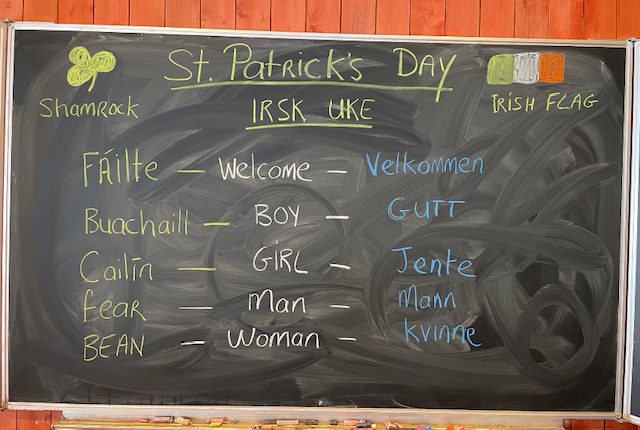 St. Patrick's Day
Shamrock
IRSK UKE
IRISH FLAG
FÁILte — Welcome — Velkommen
Buachaill — BOY — GUTT
Cailín — GIRL — Jente
fear — Man — Mann
BEAN — Woman — kvinne